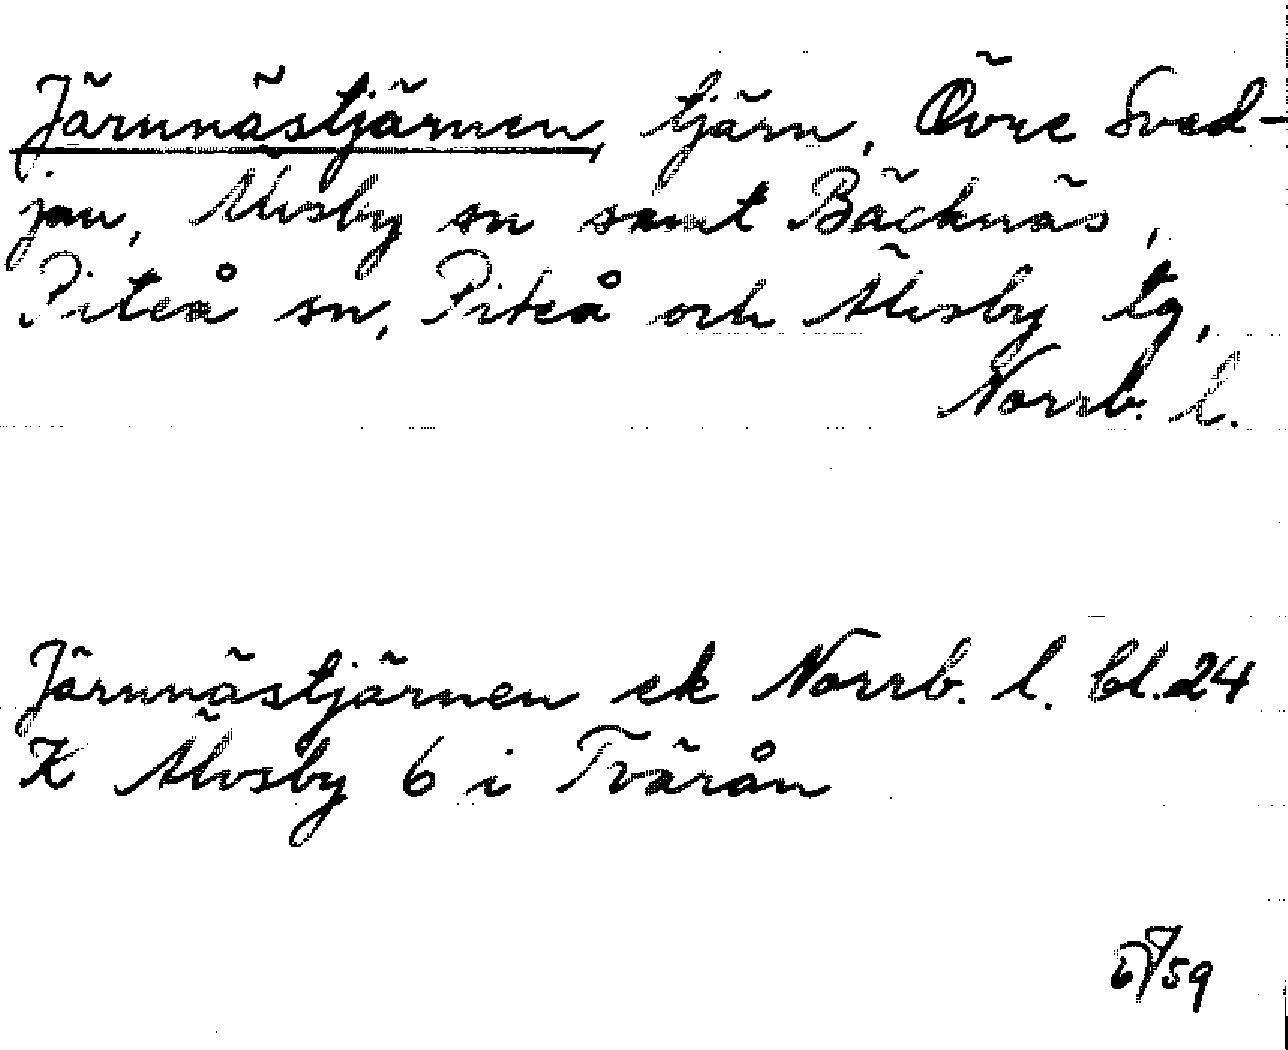 Järnnästjärnen, tjärn, Övre Sved-
jan, Älvsby sn samt Bäcknäs,
Piteå sn, Piteå och Älvsby tg,
Norrb. l.
Järnnästjärnen ek Norrb. l. bl. 24
K Älvsby 6 i Tvärån
59